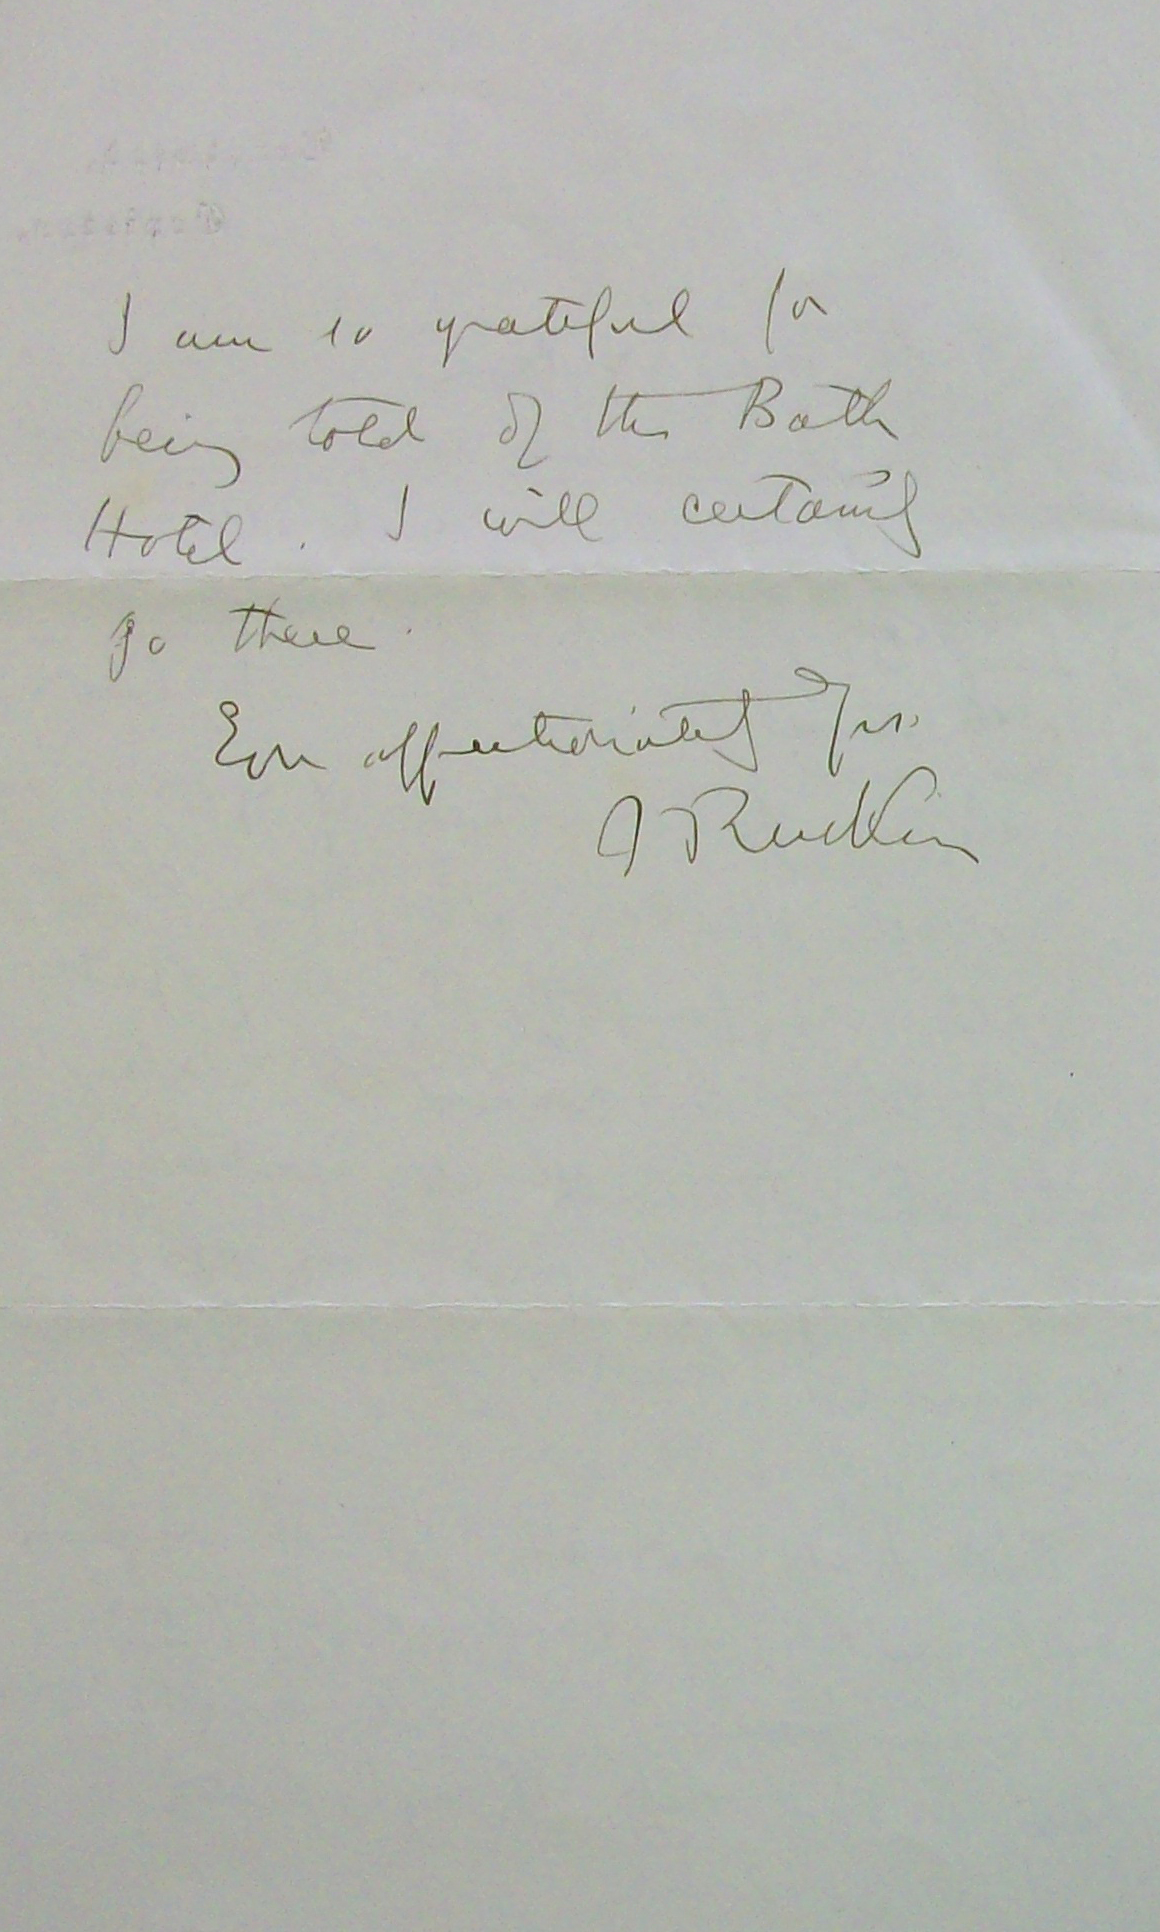 Brantwood,
Coniston.
I am so grateful for
being told of the Bath
Hotel. I will certainly
go there.
Ever affectionately Yrs.
J Ruskin